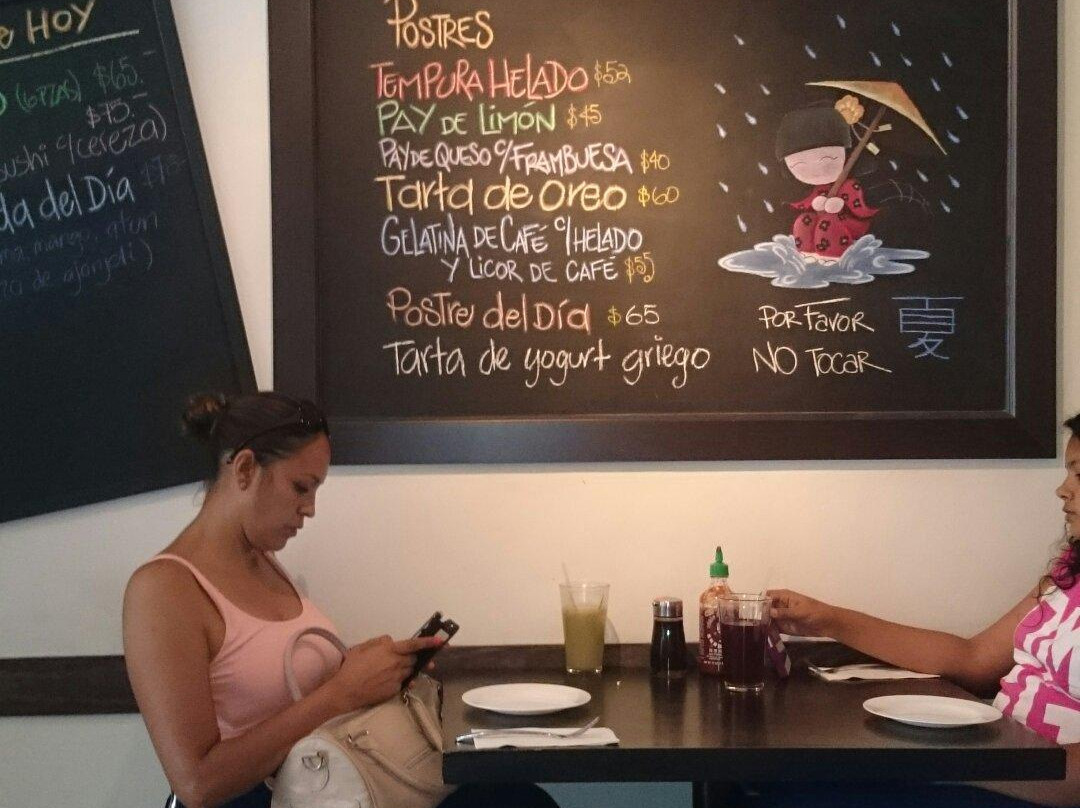 e HOY
(6 PZAS) $65.-
$75.-
sushi c/cereza)
da del Día $75
mango, atún
za de ajonjolí)
POSTRES
TEMPURA HELADO $52
PAY DE LIMÓN $45
PAY DE QUESO C/FRAMBUESA $40
Tarta de Oreo $60
GELATINA DE CAFÉ C/HELADO
Y LICOR DE CAFÉ $55
Postre del Día $65
Tarta de yogurt griego
POR FAVOR
NO TOCAR
夏